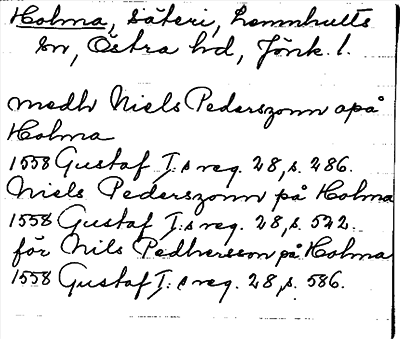 Holma, säteri, Lemnhults
sn, Östra hd, Jönk. l.
medh Niels Pederszonn apå
Holma
1558 Gustaf I:s reg. 28, s. 286.
Niels Pederszonn på Holma
1558 Gustaf I:s reg. 28, s. 522.
för Nils Pedhersson på Holma
1558 Gustaf I:s reg. 28, s. 586.